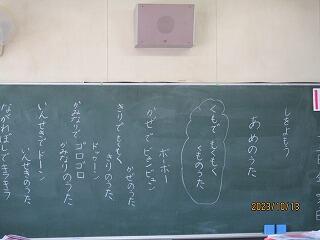 しをよもう
あめのうた
くもで もくもく
くものうた
ボーボー
かぜで ビュンビュン
かぜのうた
きりで もくもく
きりのうた
ドドーン
かみなりで ゴロゴロ
かみなりのうた
いんせきで ドーン
いんせきのうた
ながれぼしで キラキラ
2023/10/13